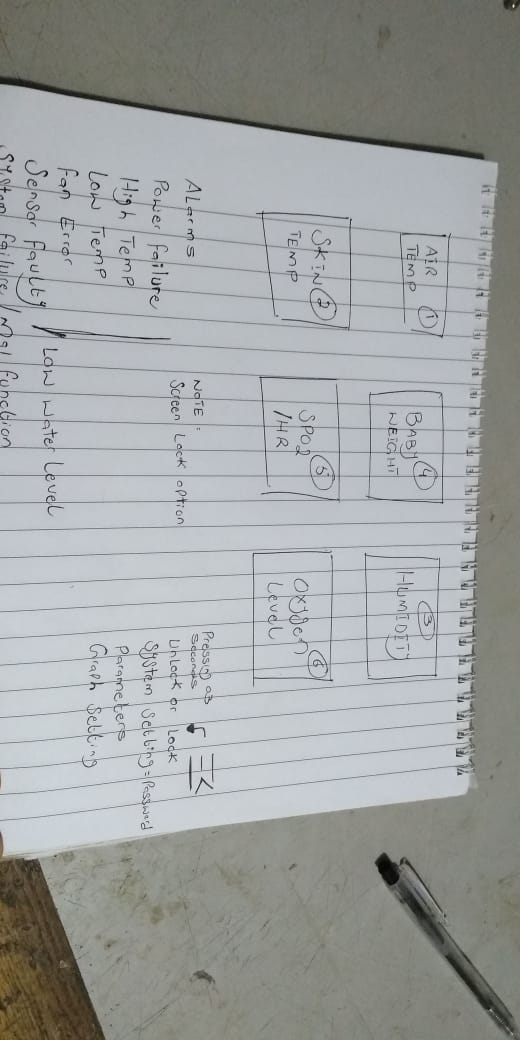 AIR 1
TEMP
BABY 4
WEIGHT
3
HUMIDITY
SKIN 2
TEMP
SPO2 5
/HR
Oxygen 6
Level
ALarms
Power failure
High Temp
Low Temp
Fan Error
Sensor Faulty
Low water Level
System failure / Mal function
NOTE :
Screen Lock option
03
Seconds
UnLock or Lock
System Setting = Password
Parameters
Graph Setting